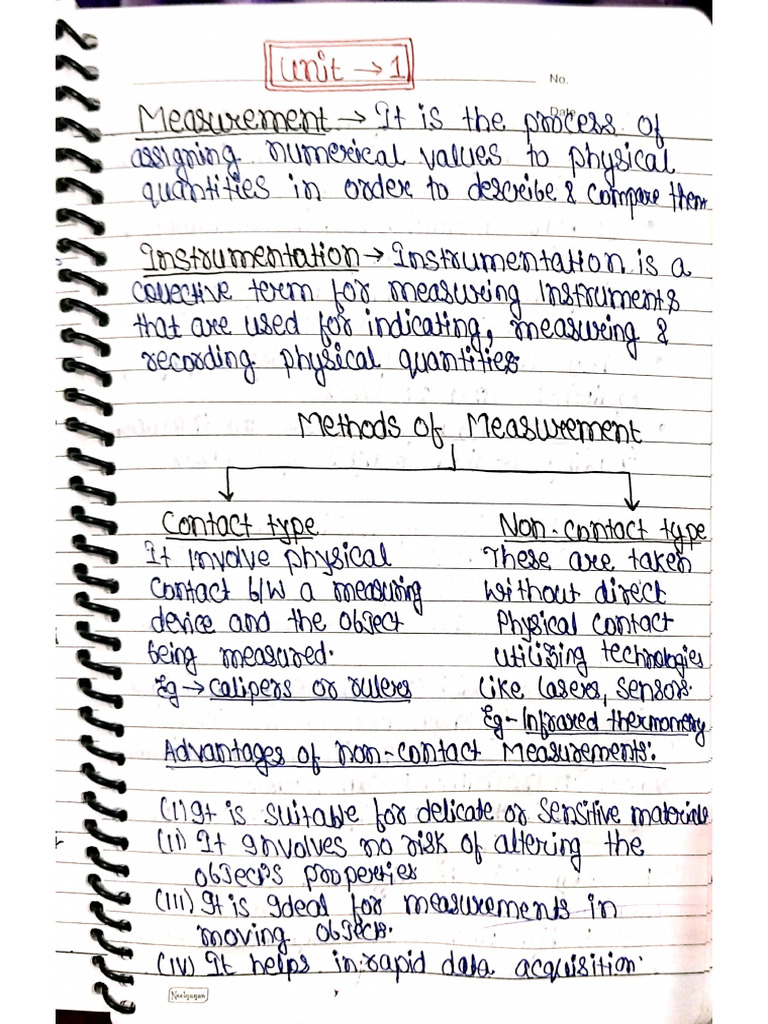 Unit → 1
No.
Date
Measurement → It is the process of
assigning numerical values to physical
quantities in order to describe & compare them
Instrumentation → Instrumentation is a
collective term for measuring Instruments
that are used for indicating, measuring &
recording physical quantities
Methods of Measurement
Contact type
It involve physical
contact b/w a measuring
device and the object
being measured.
Eg → calipers or rulers
Non-contact type
These are taken
without direct
Physical contact
utilizing technologies
like lasers, sensors.
Eg - Infrared thermometry
Advantages of non-contact Measurements:
(i) It is suitable for delicate or sensitive materials
(ii) It Involves no risk of altering the
object's properties
(iii) It is Ideal for measurements in
moving objects.
(iv) It helps in rapid data acquisition.
Neelgagan